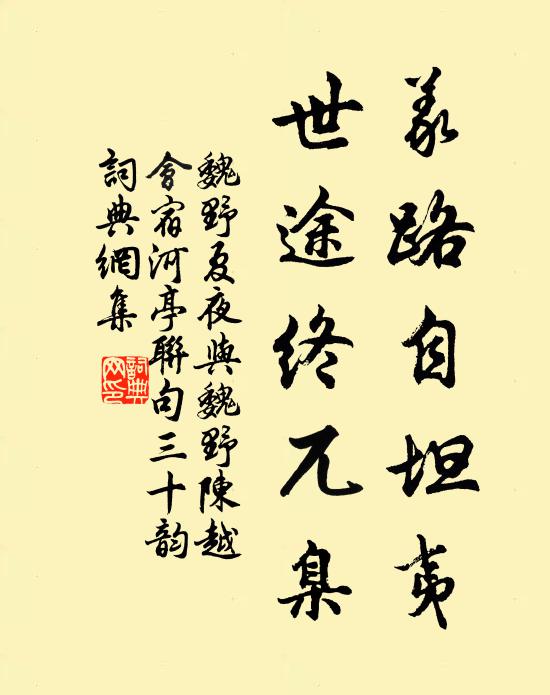 義路自坦夷
世途終兀臬
魏野夏夜與魏野陳越
會宿河亭聯句三十韵
詞典網集
詞典
网印